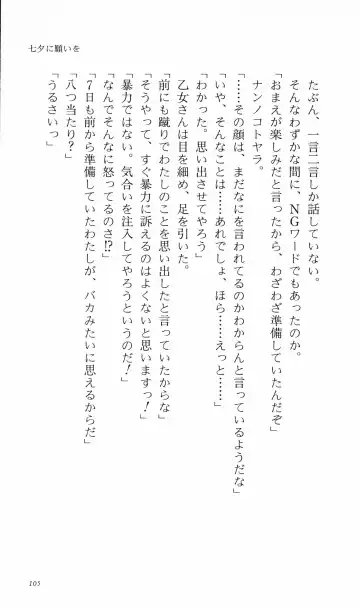 七夕に願いを
たぶん、一言二言しか話していない。
そんなわずかな間に、NGワードでもあったのか。
「おまえが楽しみだと言ったから、わざわざ準備していたんだぞ」
ナンノコトヤラ。
「……その顔は、まだなにを言われてるのかわからんと言っているようだな」
「いや、そんなことは……あれでしょ、ほら……えっと……」
「わかった。思い出させてやろう」
乙女さんは目を細め、足を引いた。
「前にも蹴りでわたしのことを思い出したと言っていたからな」
「そうやって、すぐ暴力に訴えるのはよくないと思いますっ！」
「暴力ではない。気合いを注入してやろうというのだ！」
「なんでそんなに怒ってるのさ!?」
「7日も前から準備していたわたしが、バカみたいに思えるからだ」
「八つ当たり？」
「うるさいっ」
105